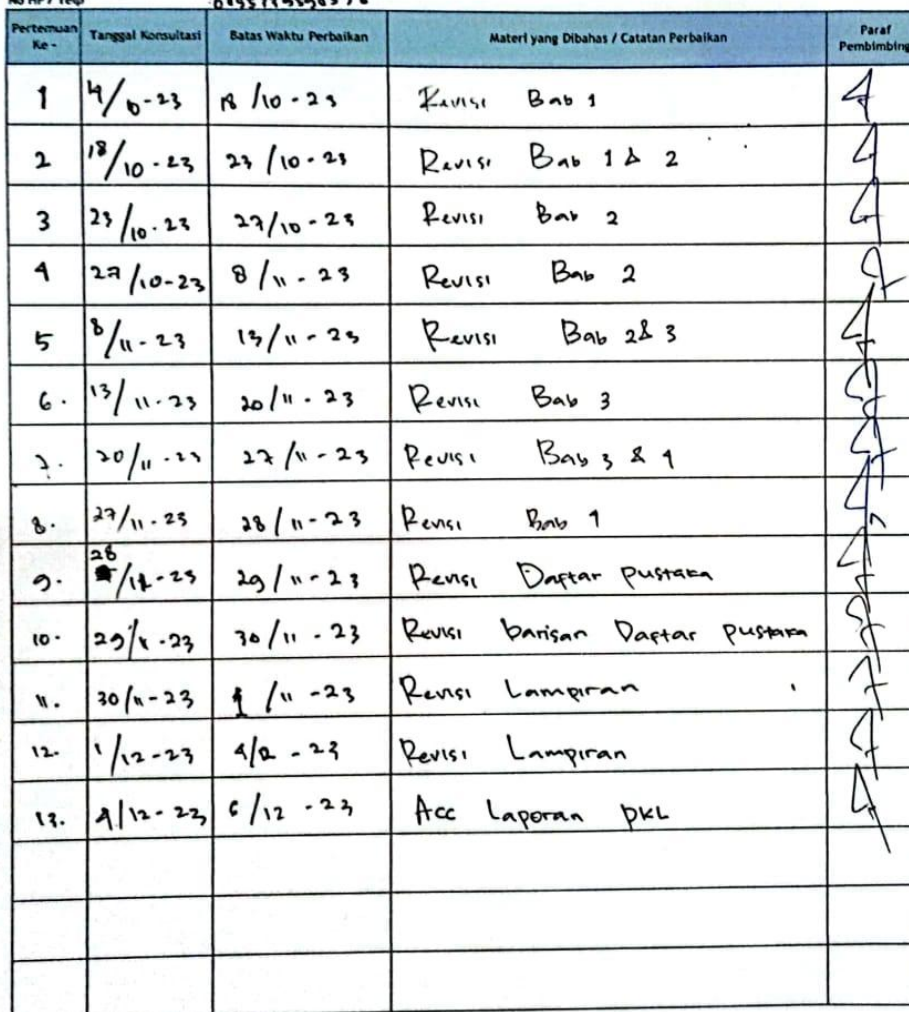 Pertemuan Ke - Tanggal Konsultasi Batas Waktu Perbaikan Materi yang Dibahas / Catatan Perbaikan Paraf Pembimbing
1 4/10-23 18/10-23 Revisi Bab 1
2 18/10-23 23/10-23 Revisi Bab 1 & 2
3 23/10-23 27/10-23 Revisi Bab 2
4 27/10-23 8/11-23 Revisi Bab 2
5 8/11-23 13/11-23 Revisi Bab 2 & 3
6. 13/11-23 20/11-23 Revisi Bab 3
7. 20/11-23 27/11-23 Revisi Bab 3 & 4
8. 27/11-23 28/11-23 Revisi Bab 4
9. 28/11-23 29/11-23 Revisi Daftar Pustaka
10. 29/11-23 30/11-23 Revisi barisan Daftar Pustaka
11. 30/11-23 1/11-23 Revisi Lampiran
12. 1/12-23 4/12-23 Revisi Lampiran
13. 4/12-23 6/12-23 Acc Laporan PKL